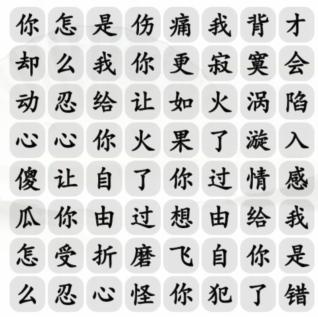 你怎是伤痛我背才
却么我你更寂寞会
动忍给让如火涡陷
心心你火果了漩入
傻让自了你过情感
瓜你由过想由给我
怎受折磨飞自你是
么忍心怪你犯了错